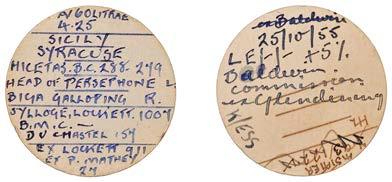 AV 60 LITRAE
4.25
SICILY
SYRACUSE
HICETAS. B.C. 288-279
HEAD OF PERSEPHONE L.
BIGA GALLOPING R.
SYLLOGE, LOCKETT. 1007
B.M.C.
DU CHASTEL 154
EX LOCKETT 911
EX P. MATHEY
27
ex Baldwin
25/10/55
+5%
Baldwin
commission
ex Glendining
K/ESS